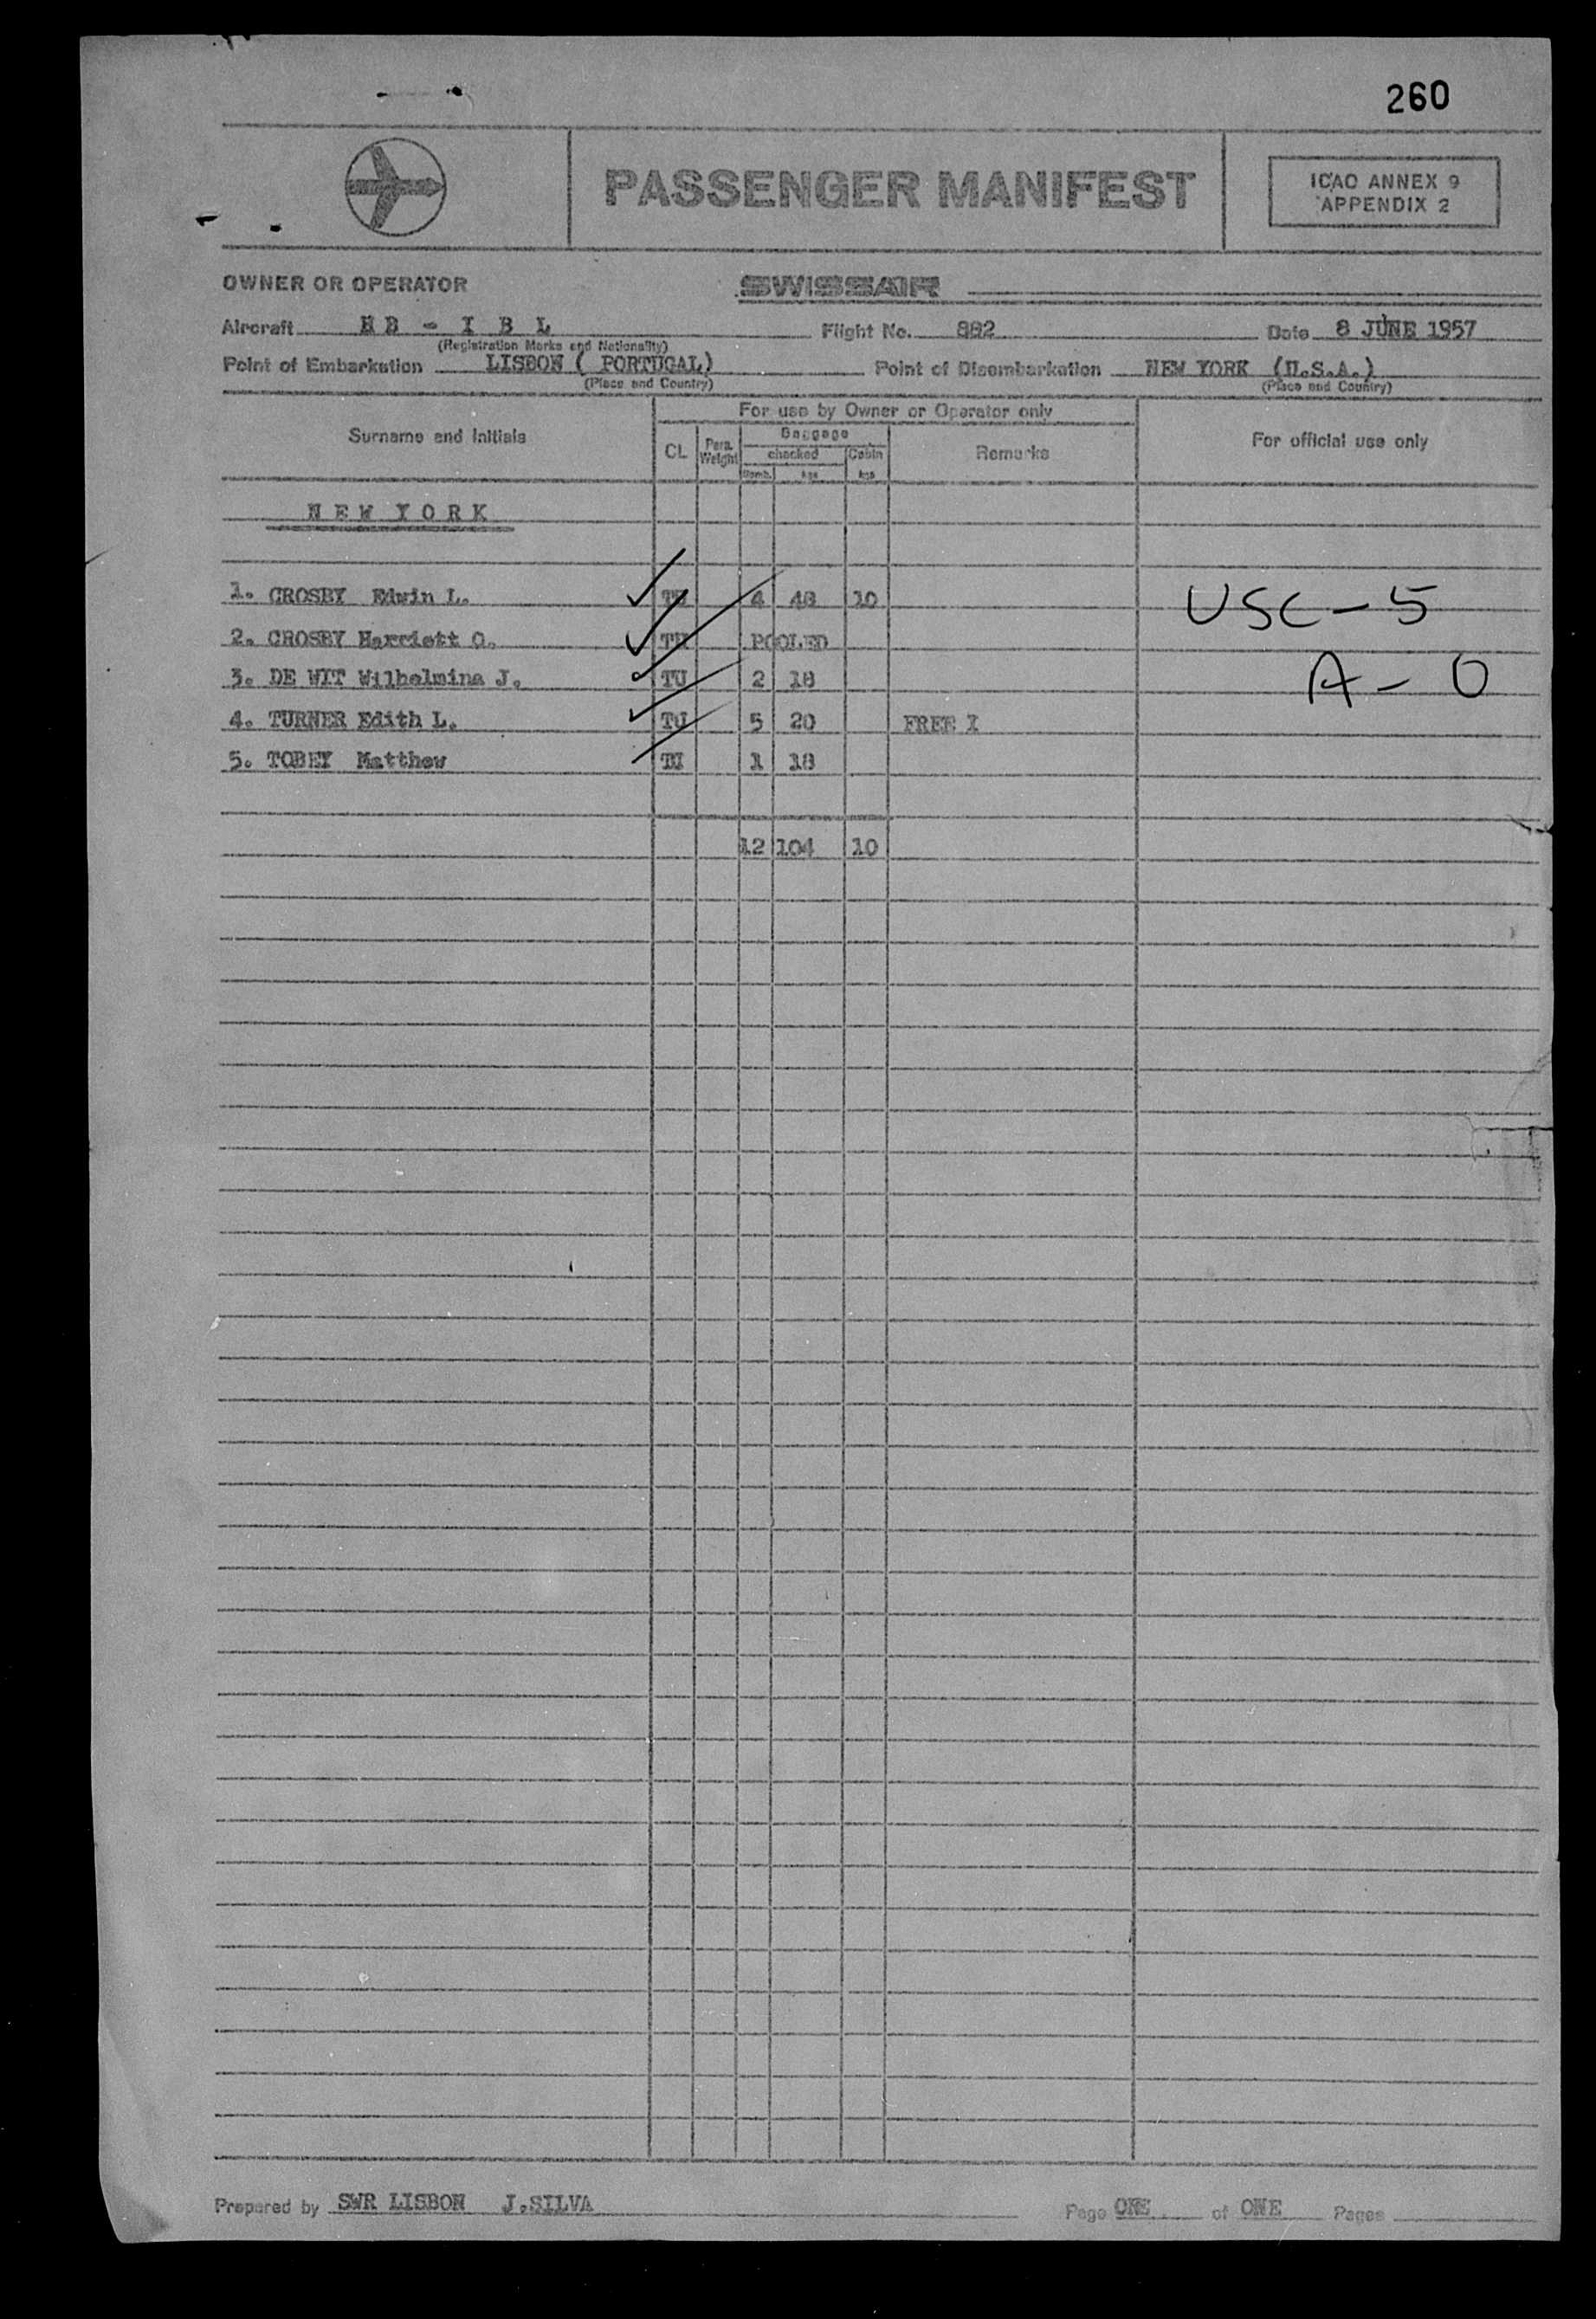 260
PASSENGER MANIFEST
ICAO ANNEX 9
APPENDIX 2
OWNER OR OPERATOR SWISSAIR
Aircraft HB - I B L Flight No. 882 Date 8 JUNE 1957
(Registration Marks and Nationality)
Point of Embarkation LISBON ( PORTUGAL) Point of Disembarkation NEW YORK (U.S.A.)
(Place and Country) (Place and Country)
Surname and Initials
For use by Owner or Operator only
CL
Pers. Weight
Baggage
checked Cabin
Numb. kgs kgs
Remarks
For official use only
N E W Y O R K
1. CROSBY Edwin L. TU 4 48 10
USC - 5
2. CROSBY Harriett O. TU POOLED
A - 0
3. DE WIT Wilhelmina J. TU 2 18
4. TURNER Edith L. TU 5 20 FREE I
5. TOBEY Matthew TU 1 18
12 104 10
Prepared by SWR LISBON J.SILVA Page ONE of ONE Pages